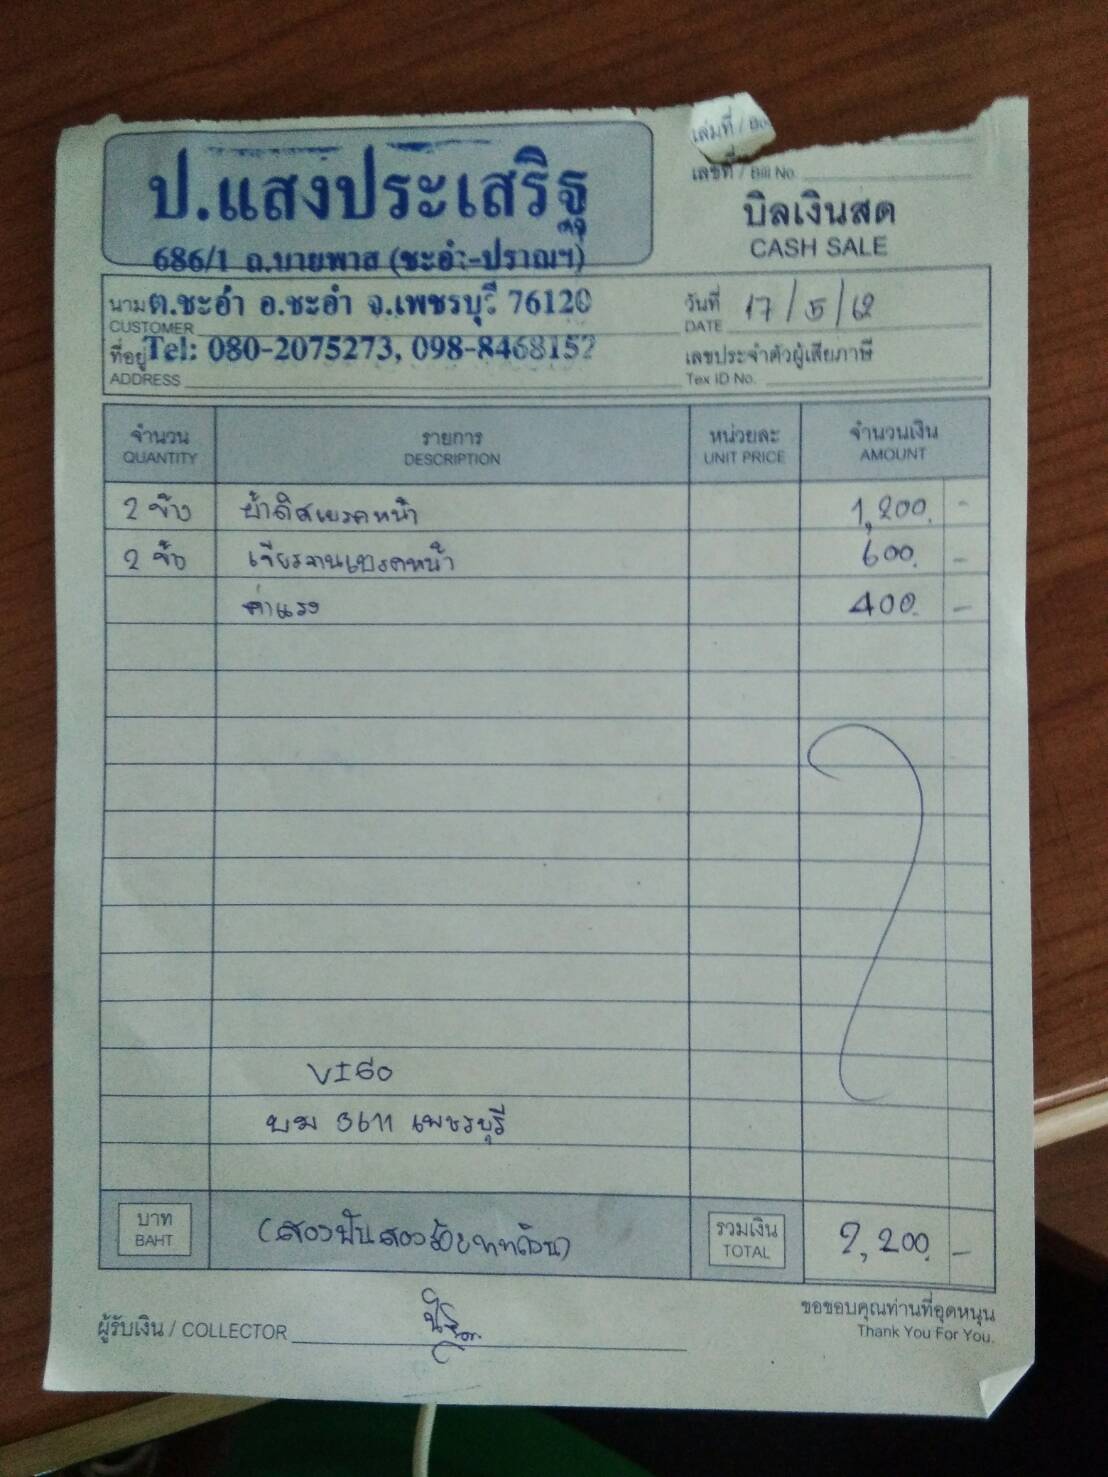 เล่มที่ / Bo
เลขที่ / Bill No.
ป.แสงประเสริฐ
บิลเงินสด
CASH SALE
686/1 ถ.บายพาส (ชะอำ-ปราณฯ)
นาม ต.ชะอำ อ.ชะอำ จ.เพชรบุรี 76120
CUSTOMER
วันที่ 17/5/62
DATE
ที่อยู่ Tel: 080-2075273, 098-8468152
ADDRESS
เลขประจำตัวผู้เสียภาษี
Tex ID No.
จำนวน รายการ หน่วยละ จำนวนเงิน
QUANTITY DESCRIPTION UNIT PRICE AMOUNT
2 ข้าง ผ้าดิสเบรคหน้า 1,200 -
2 ข้าง เจียรจานเบรคหน้า 600 -
ค่าแรง 400 -
VIGO
บม 3611 เพชรบุรี
บาท (สองพันสองร้อยบาทถ้วน) รวมเงิน 2,200 -
BAHT TOTAL
ผู้รับเงิน / COLLECTOR
ขอขอบคุณท่านที่อุดหนุน
Thank You For You.